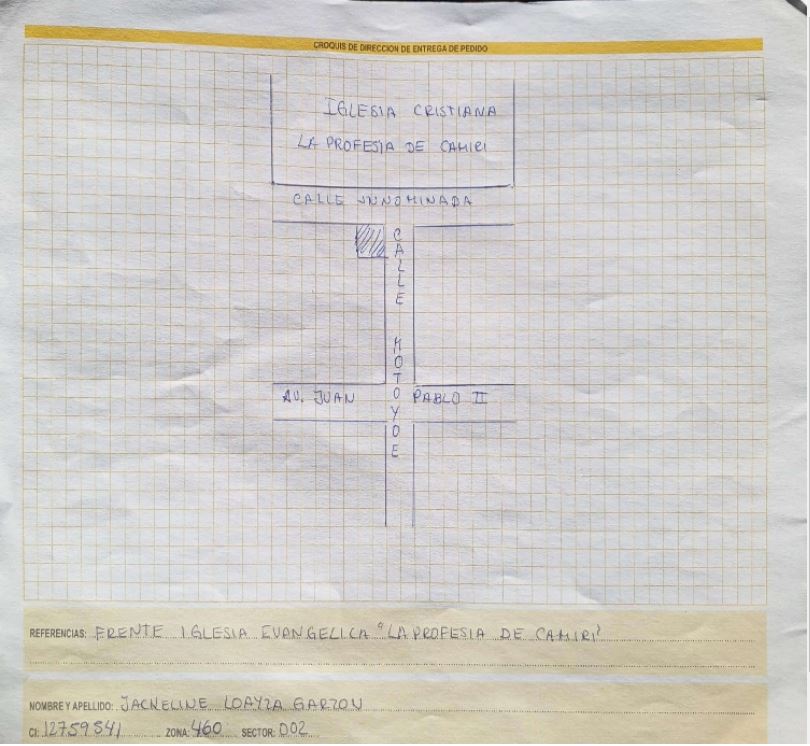 CROQUIS DE DIRECCION DE ENTREGA DE PEDIDO
IGLESIA CRISTIANA
LA PROFESIA DE CAMIRI
CALLE INNOMINADA
CALLE MOTOYOE
AV. JUAN PABLO II
REFERENCIAS: FRENTE IGLESIA EVANGELICA "LA PROFESIA DE CAMIRI"
NOMBRE Y APELLIDO: JACKELINE LOAYZA GARZON
CI: 12759841 ZONA: 460 SECTOR: D02